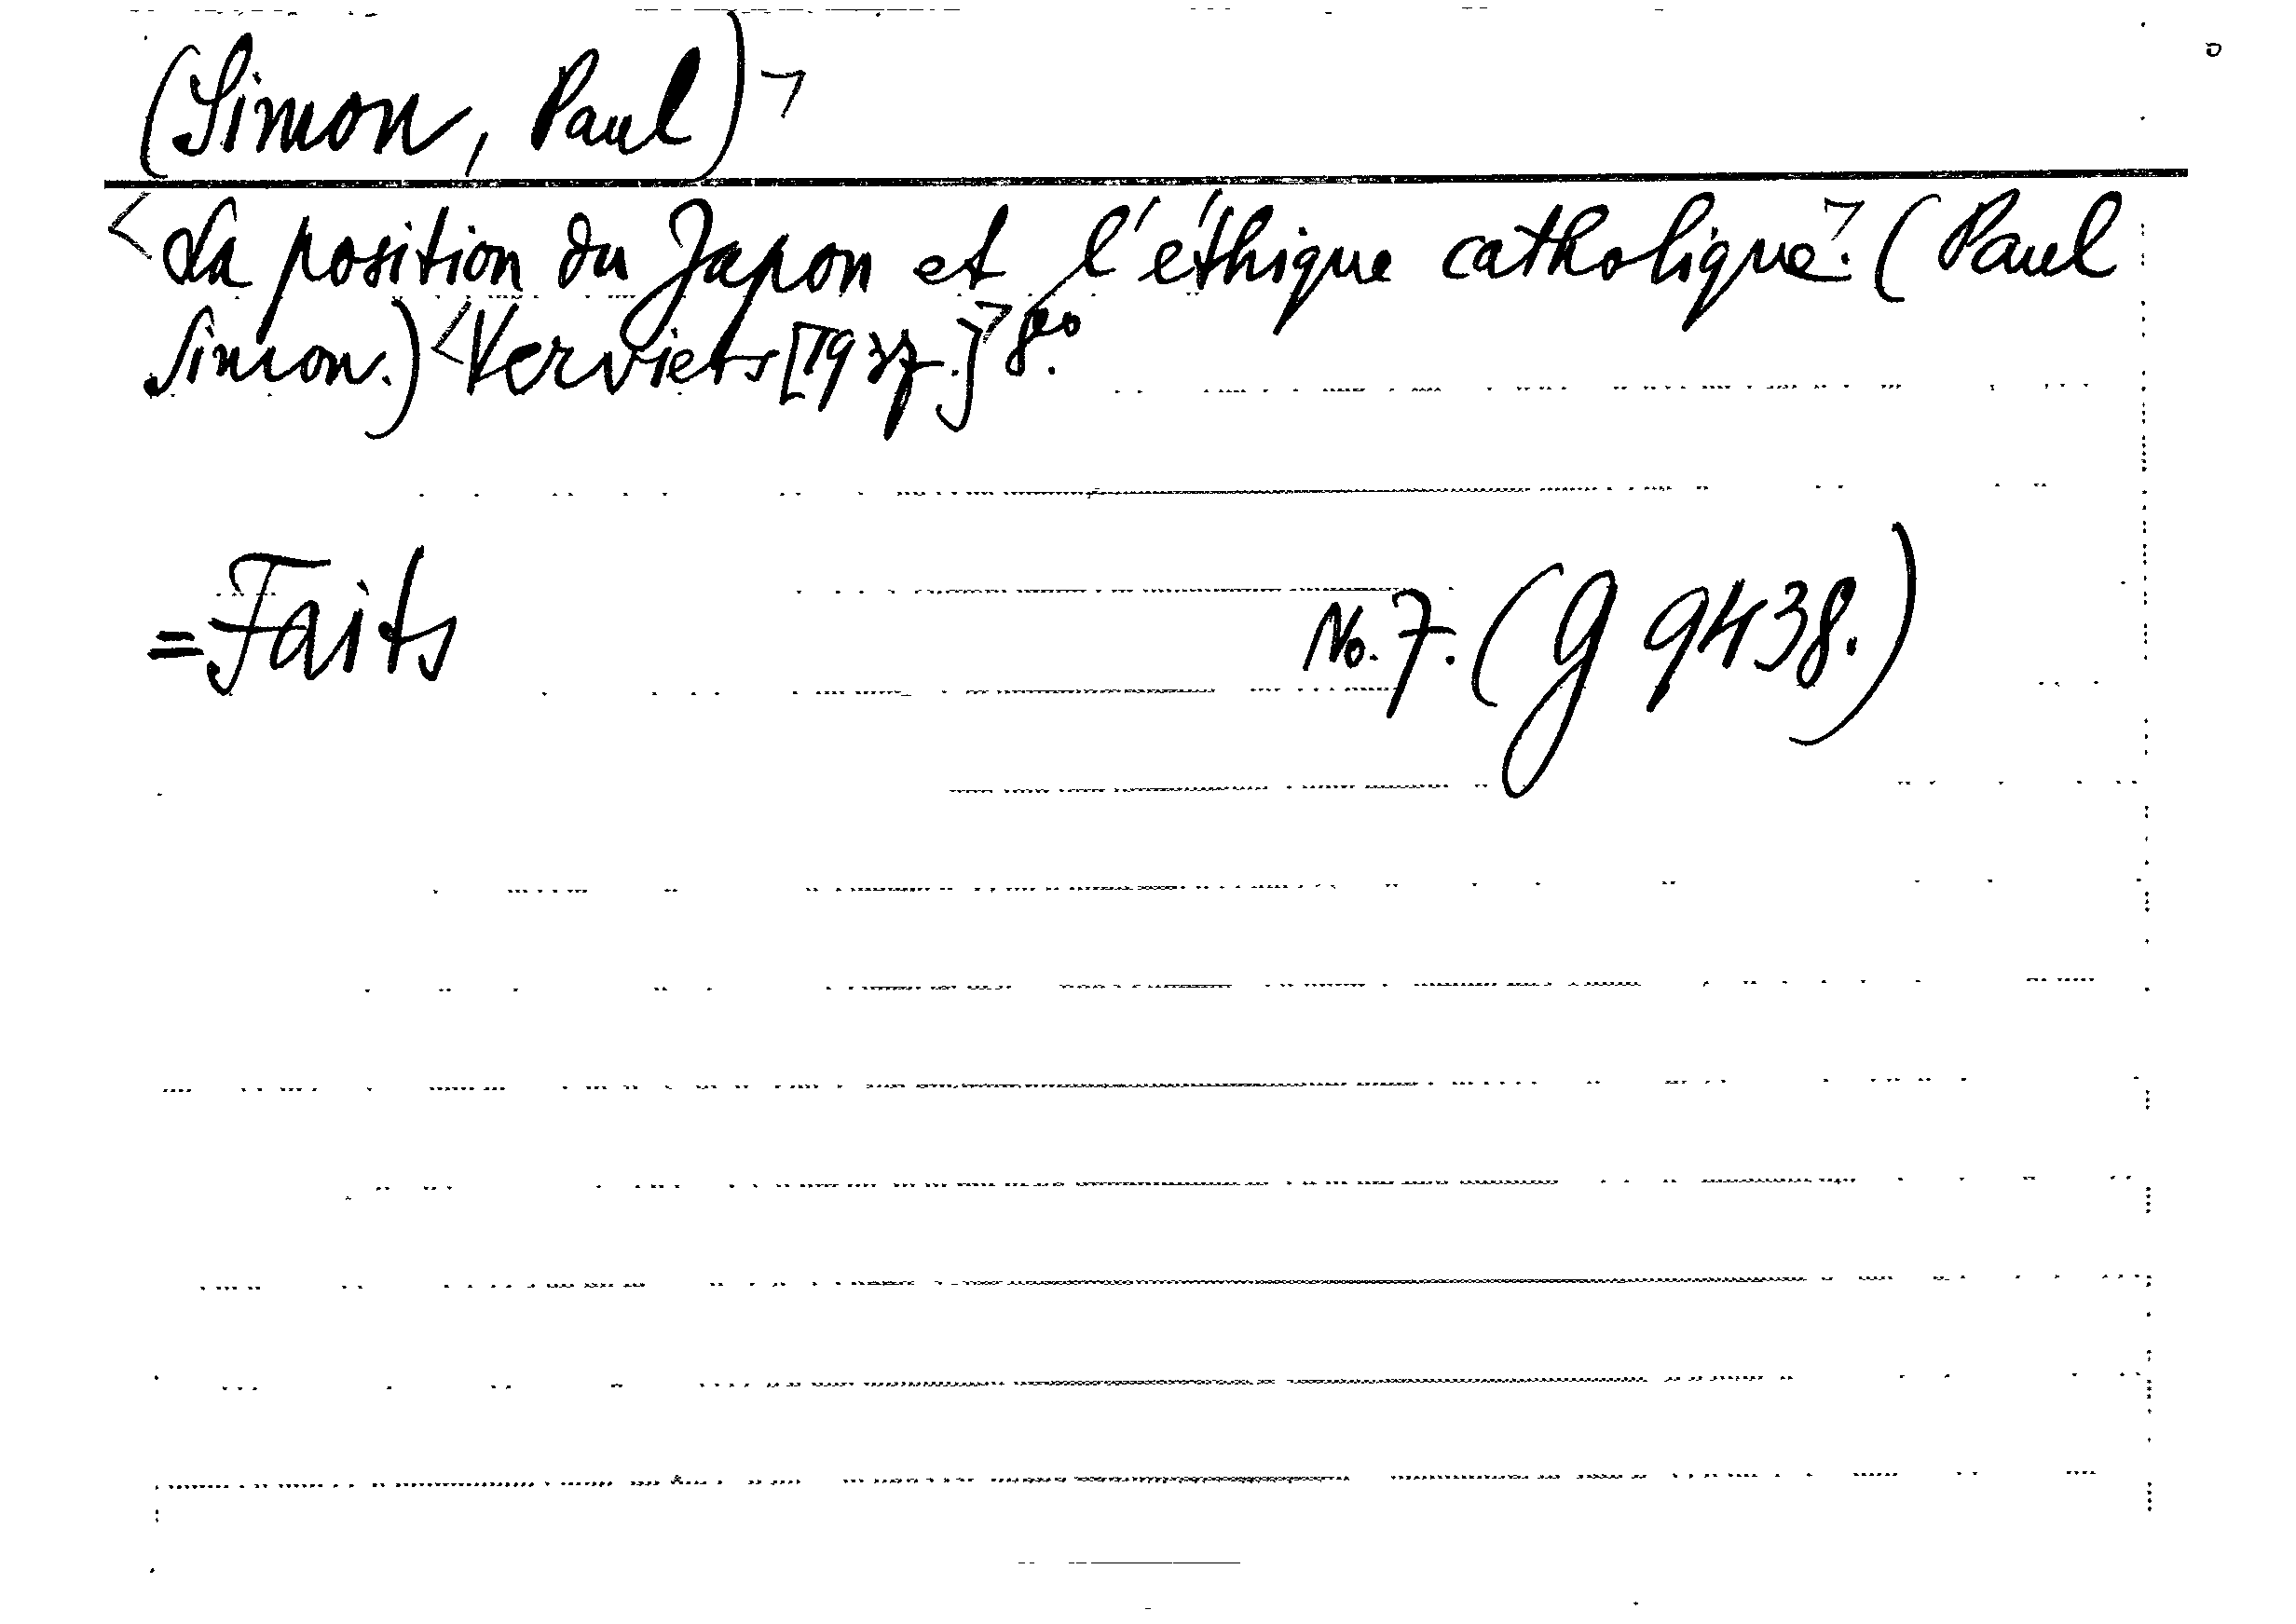 (Simon, Paul)⁊
<La position du Japon et l'éthique catholique⁊. (Paul
Simon.) <Verviers [1937.]⁊ 8°.
=Faits No. 7. (G 9438.)